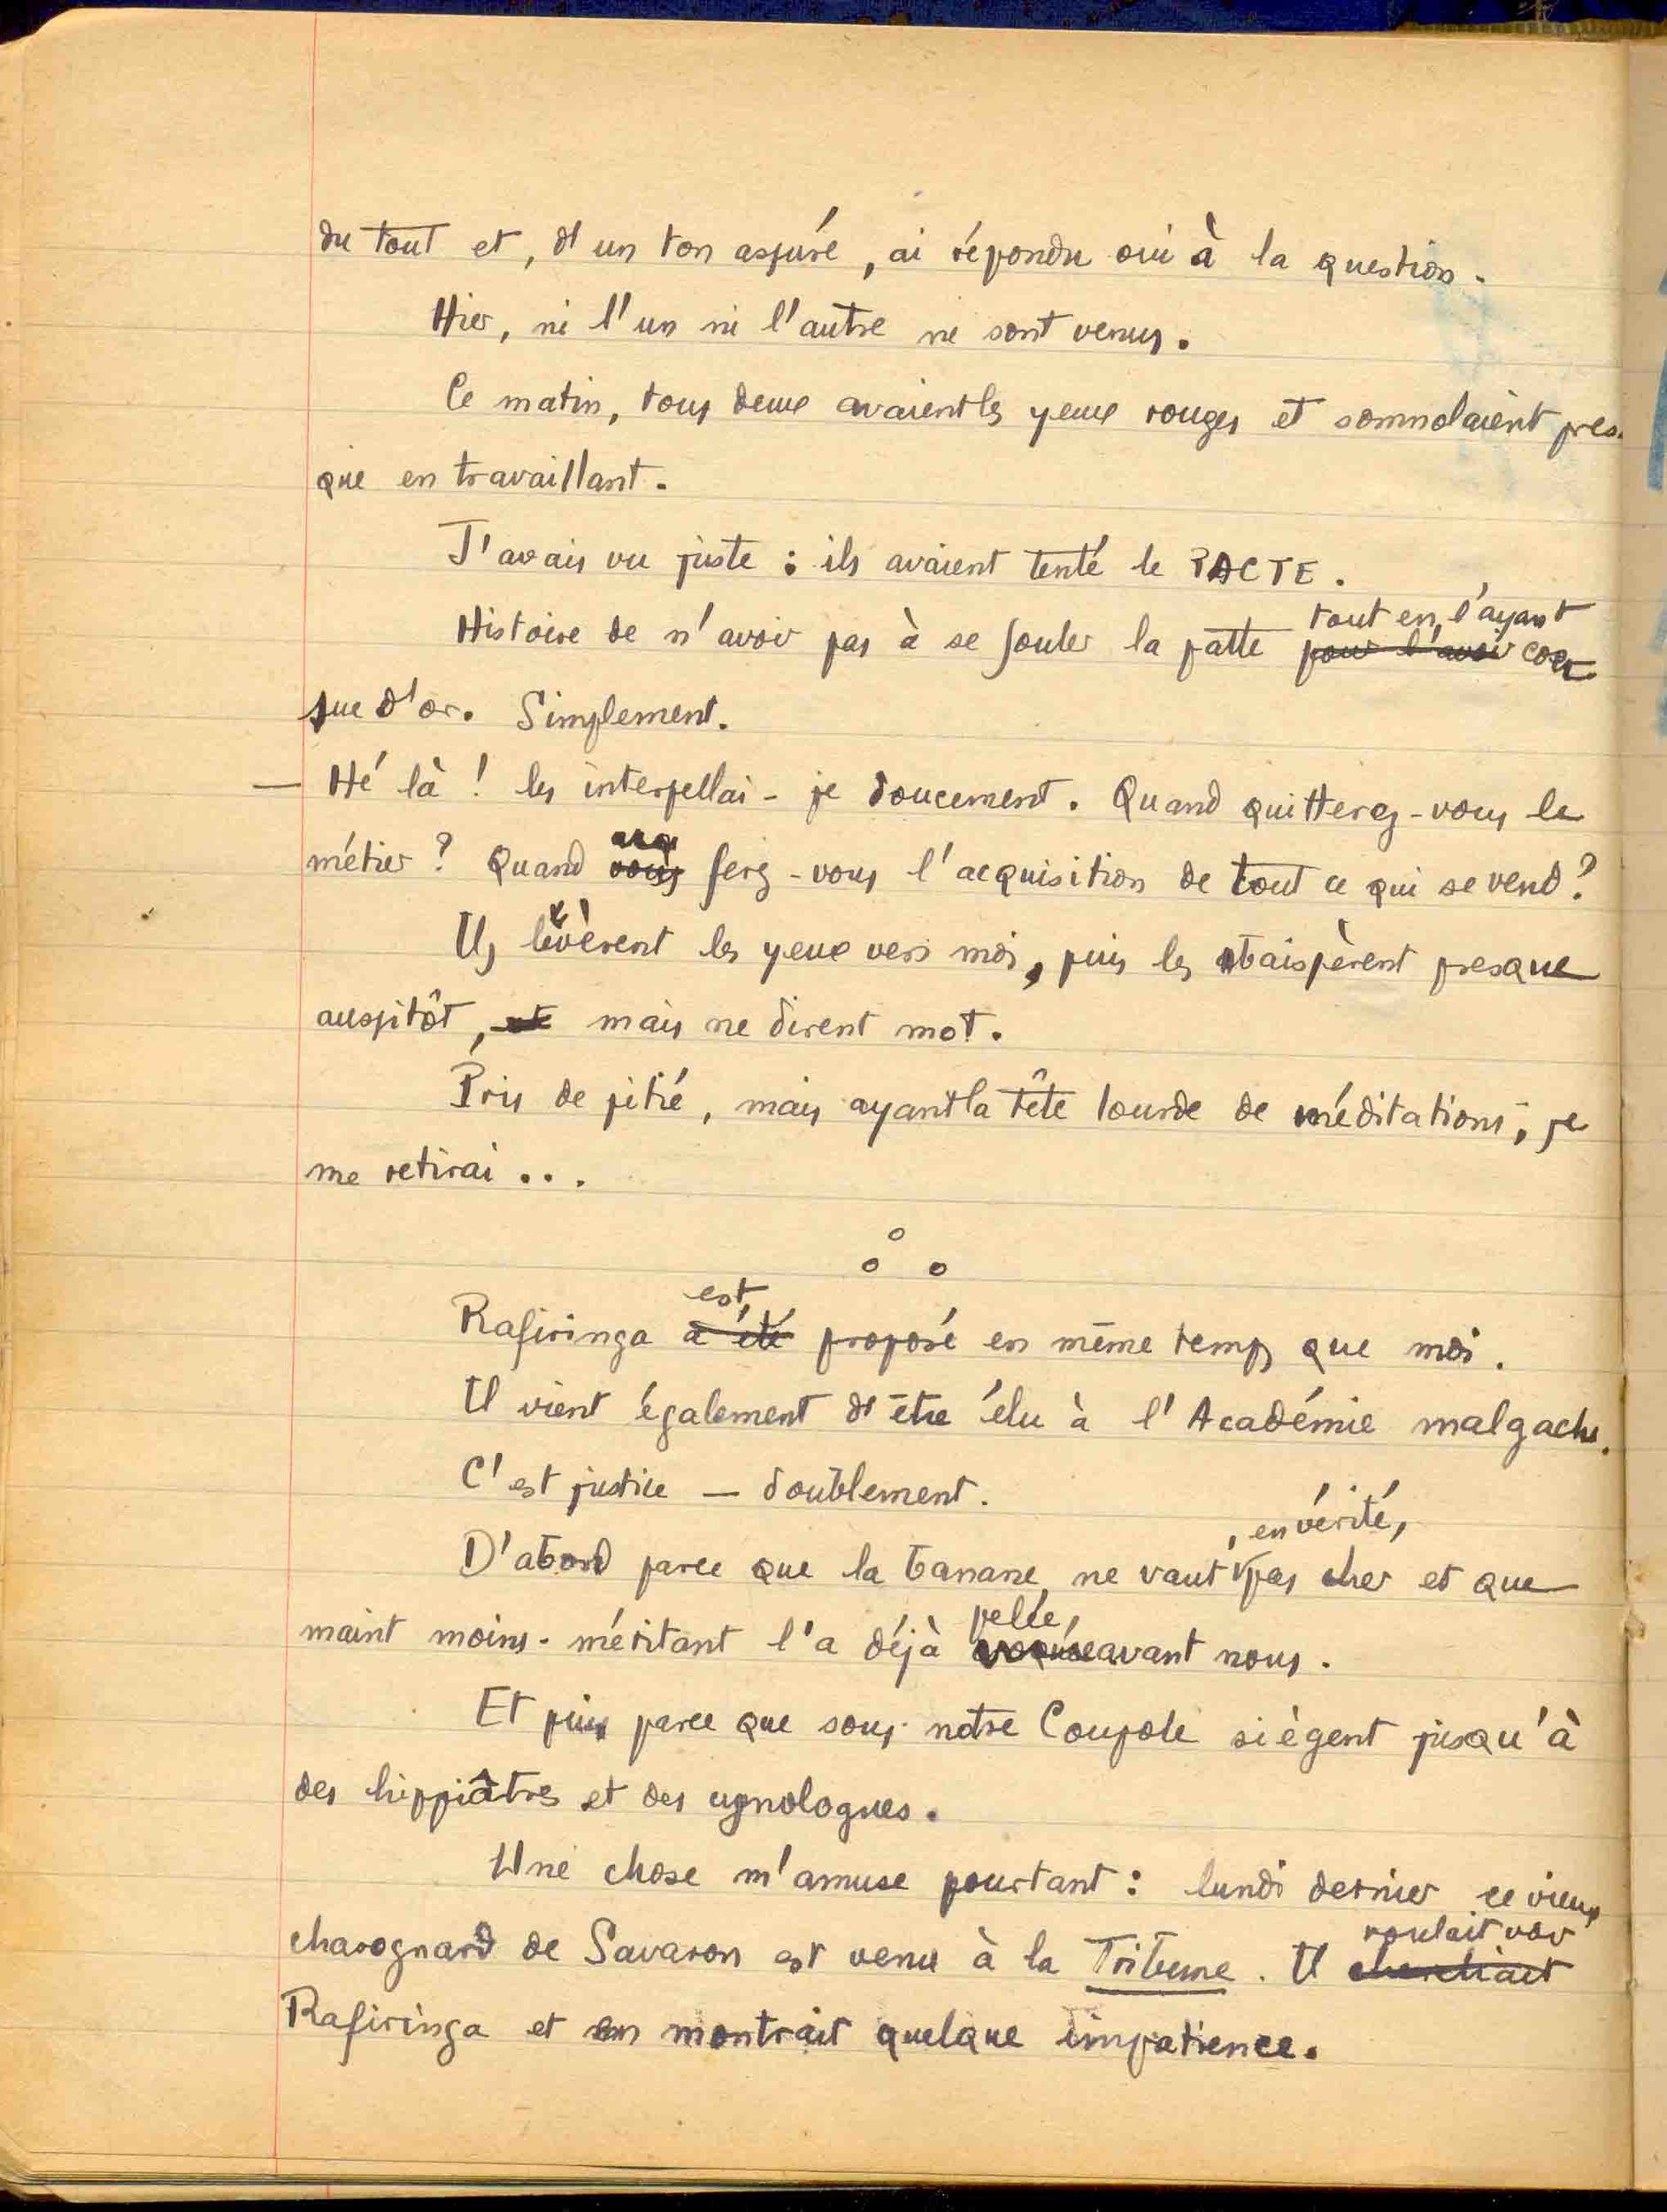 du tout et, d'un ton assuré, ai répondu oui à la question.
Hier, ni l'un ni l'autre ne sont venus.
Ce matin, tous deux avaient les yeux rouges et somnolaient pres-
que en travaillant.
J'avais vu juste : ils avaient tenté le PACTE.
tout en l'ayant
Histoire de n'avoir pas à se fouler la patte pour l'avoir cou-
sue d'or. Simplement.
— Hé là ! les interpellai-je doucement. Quand quitterez-vous le
métier ? Quand vous ferez-vous l'acquisition de tout ce qui se vend ?
Ils levèrent les yeux vers moi, puis les abaissèrent presque
aussitôt, et mais ne dirent mot.
Pris de pitié, mais ayant la tête lourde de méditations, je
me retirai...
est
Rafiringa a été proposé en même temps que moi.
Il vient également d'être élu à l'Académie malgache.
C'est justice — doublement.
, en vérité,
D'abord parce que la banane ne vaut pas cher et que
pelée,
maint moins-méritant l'a déjà avant nous.
Et puis parce que sous notre Coupole siègent jusqu'à
des hippiâtres et des cynologues.
Une chose m'amuse pourtant : lundi dernier ce vieux
voulait voir
charognard de Savaron est venu à la Tribune. Il cherchait
Rafiringa et en montrait quelque impatience.